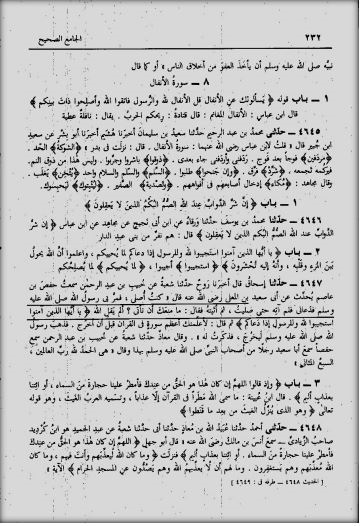 ٢٣٢ الجامع الصحيح
نبيه صلى الله عليه وسلم أن يأخذ العفو من أخلاق الناس » أو كما قال
٨ – سورة الأنفال
١ – باب قوله ﴿ يسألونك عن الأنفال قل الأنفال لله والرسول فاتقوا الله وأصلحوا ذات بينكم ﴾
قال ابن عباس : الأنفال المغانم . قال قتادة : ريحكم الحرب . يقال : نافلة عطية
٤٦٤٥ – حدثني محمد بن عبد الرحيم حدثنا سعيد بن سليمان أخبرنا هشيم أخبرنا أبو بشر عن سعيد
ابن جبير قال « قلت لابن عباس رضي الله عنهما : سورة الأنفال . قال : نزلت في بدر » ﴿الشوكة﴾ الحد .
﴿مردفين﴾ فوجاً بعد فوج . ردفني وأردفني جاء بعدي . ﴿ذوقوا﴾ باشروا وجربوا . وليس هذا من ذوق الفم .
فيركمه يجمعه . ﴿شرد﴾ فرق . ﴿وإن جنحوا﴾ طلبوا . السلم والسلم والسلام واحد ﴿يثخن﴾ يغلب .
وقال مجاهد : ﴿مكاء﴾ إدخال أصابعهم في أفواههم . ﴿وتصدية﴾ الصفير . ﴿ليثبتوك﴾ ليحبسوك .
١ – باب ﴿ إن شر الدواب عند الله الصم البكم الذين لا يعقلون ﴾
٤٦٤٦ – حدثنا محمد بن يوسف حدثنا ورقاء عن ابن أبي نجيح عن مجاهد عن ابن عباس ﴿ إن شر
الدواب عند الله الصم البكم الذين لا يعقلون ﴾ قال : هم نفر من بني عبد الدار
٢ – باب ﴿ يا أيها الذين آمنوا استجيبوا لله وللرسول إذا دعاكم لما يحييكم ، واعلموا أن الله يحول
بين المرء وقلبه ، وأنه إليه تحشرون ﴾ ﴿ استجيبوا ﴾ أجيبوا ، ﴿ لما يحييكم ﴾ لما يصلحكم
٤٦٤٧ – حدثني إسحاق قال أخبرنا روح حدثنا شعبة عن خبيب بن عبد الرحمن سمعت حفص بن
عاصم يحدث عن أبي سعيد بن المعلى رضي الله عنه قال « كنت أصلي ، فمر بي رسول الله صلى الله عليه
وسلم فدعاني فلم آته حتى صليت ، ثم أتيته فقال : ما منعك أن تأتي ؟ ألم يقل الله ﴿ يا أيها الذين آمنوا
استجيبوا لله وللرسول إذا دعاكم ﴾ ثم قال : لأعلمنك أعظم سورة في القرآن قبل أن أخرج . فذهب رسول
الله صلى الله عليه وسلم ليخرج ، فذكرت له » . وقال معاذ حدثنا شعبة عن خبيب بن عبد الرحمن سمع
حفصاً سمع أبا سعيد رجلاً من أصحاب النبي صلى الله عليه وسلم بهذا وقال « هي الحمد لله رب العالمين ،
السبع المثاني »
٣ – باب ﴿ وإذ قالوا اللهم إن كان هذا هو الحق من عندك فأمطر علينا حجارة من السماء ، أو ائتنا
بعذاب أليم ﴾ . قال ابن عيينة : ما سمى الله مطراً في القرآن إلا عذاباً ، وتسميه العرب الغيث ، وهو قوله
تعالى ﴿ وهو الذي ينزل الغيث من بعد ما قنطوا ﴾
٤٦٤٨ – حدثني أحمد حدثنا عبيد الله بن معاذ حدثنا أبي حدثنا شعبة عن عبد الحميد هو ابن كرديد
صاحب الزيادي سمع أنس بن مالك رضي الله عنه « قال أبو جهل ﴿ اللهم إن كان هذا هو الحق من عندك
فأمطر علينا حجارة من السماء . أو ائتنا بعذاب أليم ﴾ فنزلت ﴿ وما كان الله ليعذبهم وأنت فيهم ، وما كان
الله معذبهم وهم يستغفرون . وما لهم أن لا يعذبهم الله وهم يصدون عن المسجد الحرام ﴾ الآية »
[ الحديث ٤٦٤٨ – طرفه في : ٤٦٤٩ ]